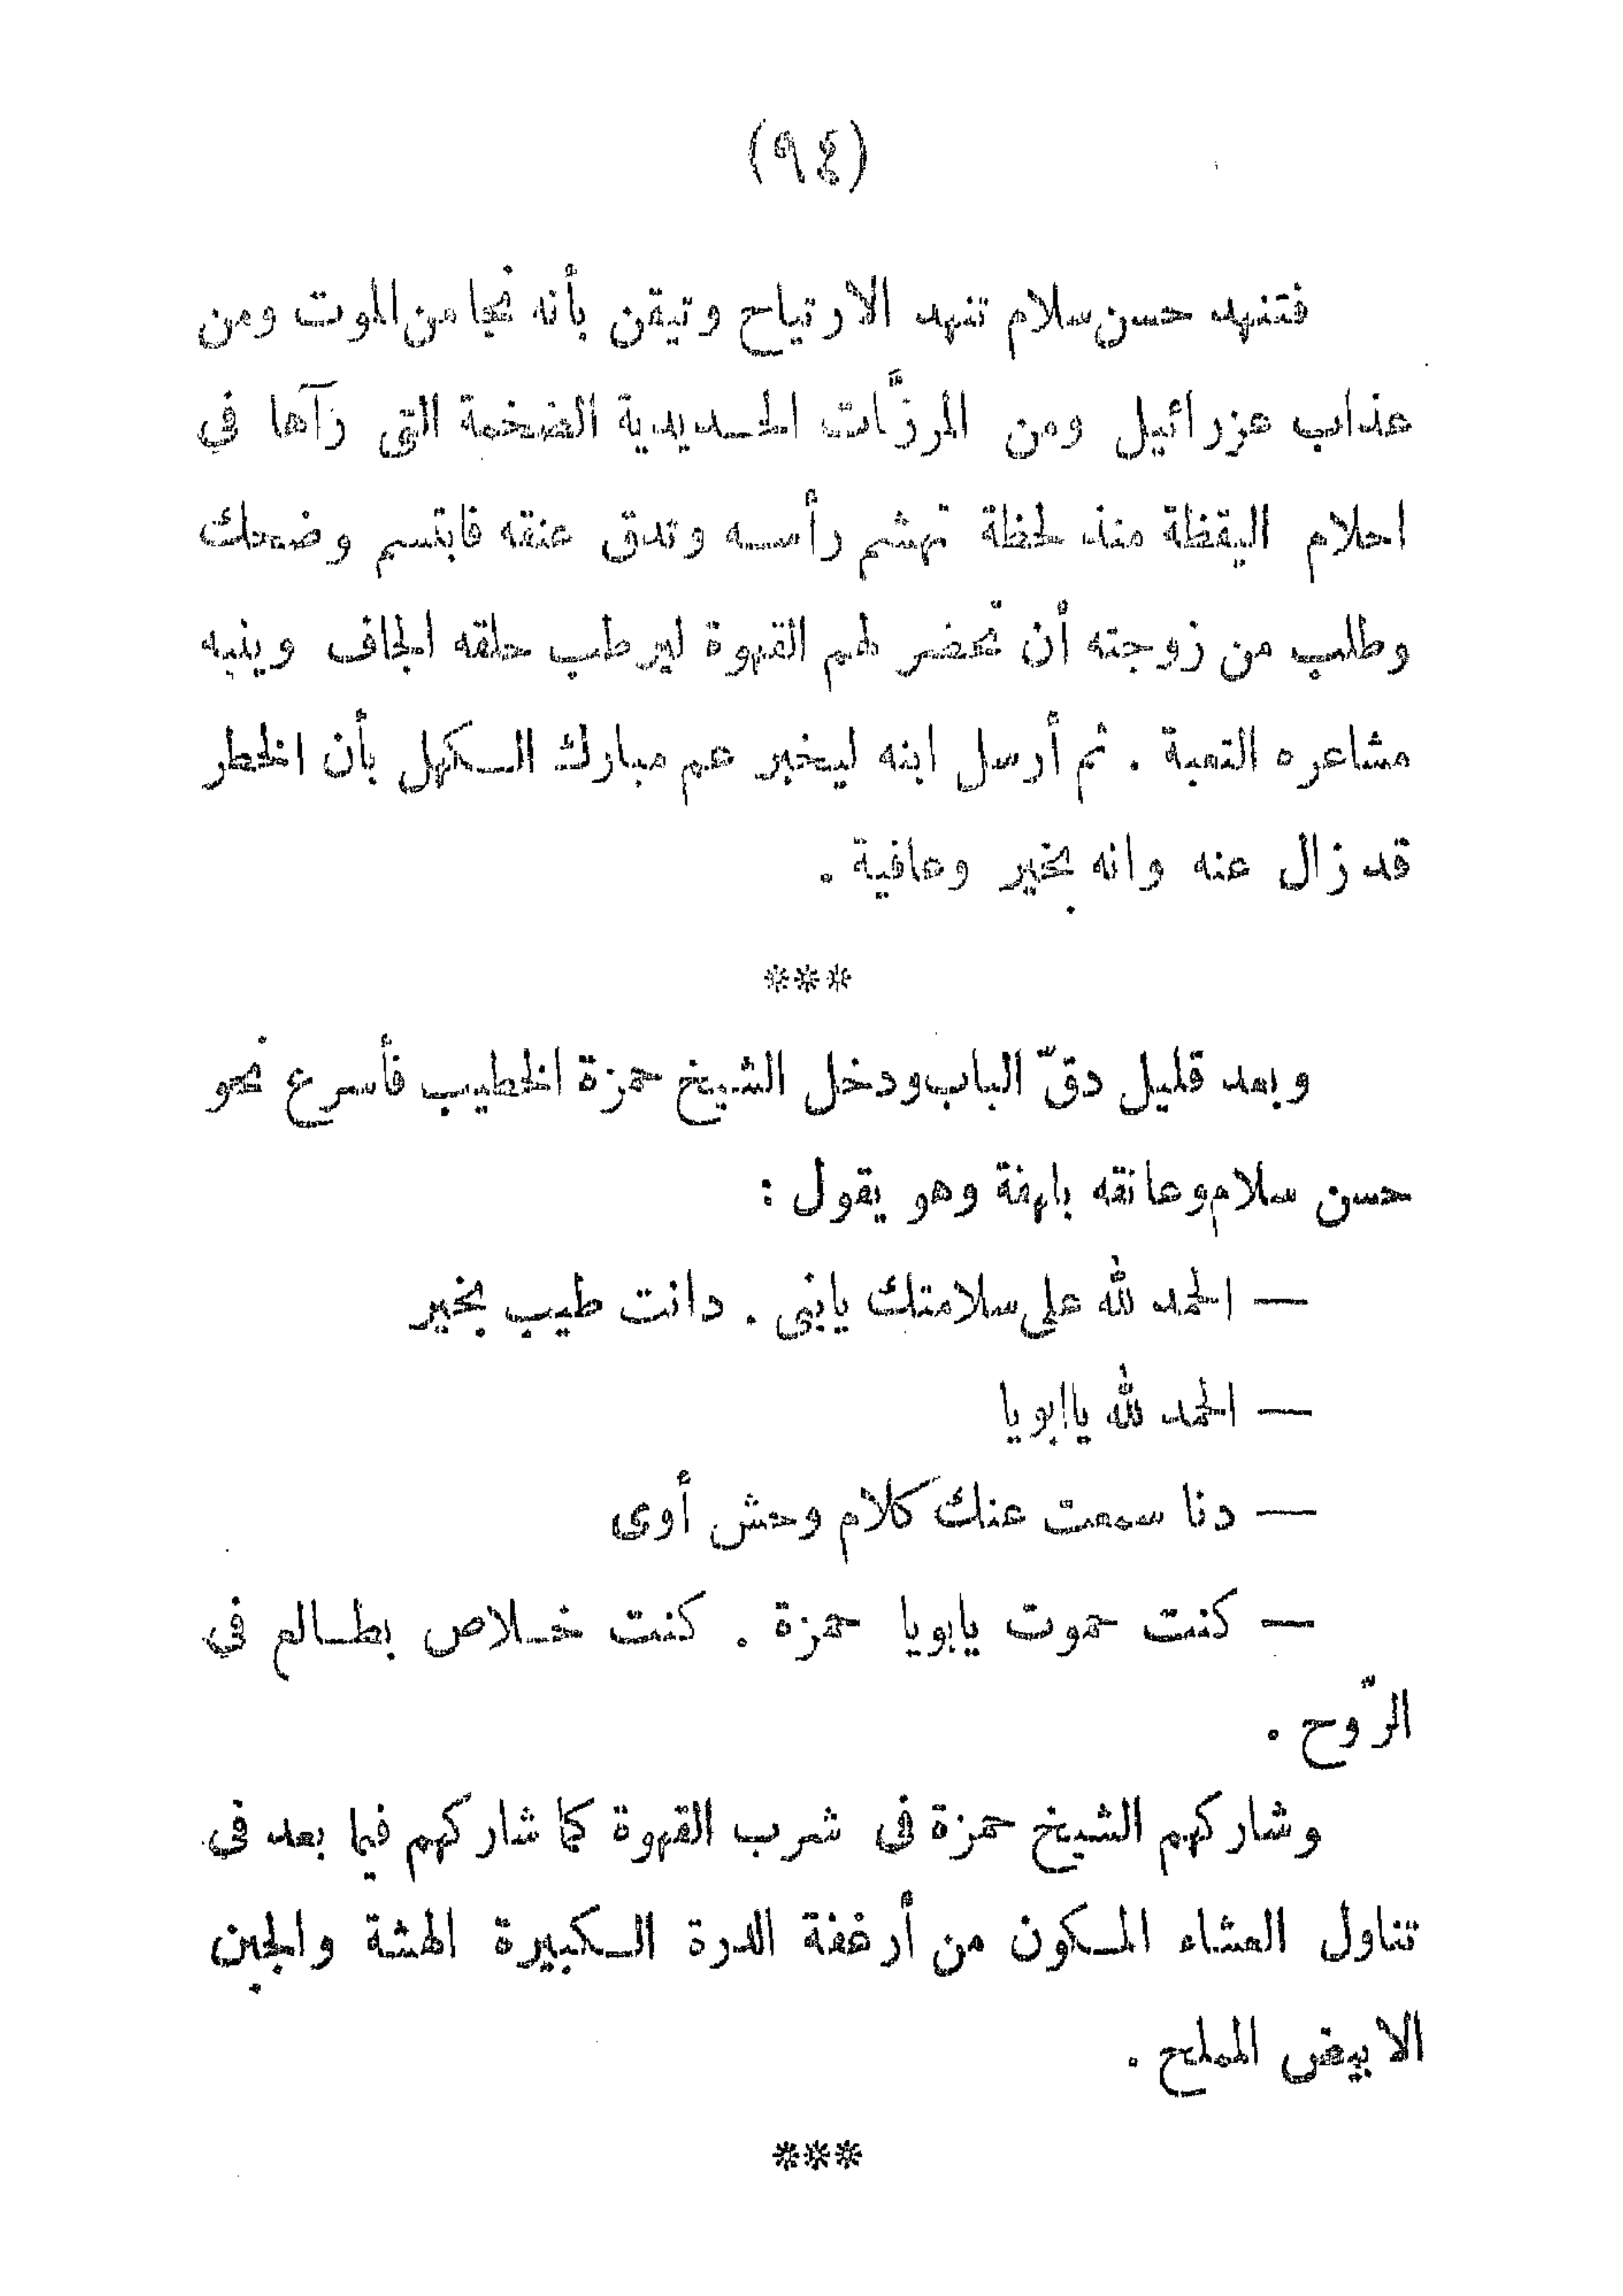 (٩٤)
فتنهد حسن سلام تنهد الارتياح وتيقن بأنه نجا من الموت ومن
عذاب عزرائيل ومن المرزَّات الحديدية الضخمة التى رآها في
احلام اليقظة منذ لحظة تهشم رأسه وتدق عنقه فابتسم وضحك
وطلب من زوجته أن تحضر لهم القهوة ليرطب حلقه الجاف وينبه
مشاعره التعبة . ثم أرسل ابنه ليخبر عم مبارك الكهل بأن الخطر
قد زال عنه وانه بخير وعافية .
***
وبعد قليل دقّ الباب ودخل الشيخ حمزة الخطيب فأسرع نحو
حسن سلام وعانقه بلهفة وهو يقول :
— الحمد لله على سلامتك يابنى . دانت طيب بخير
— الحمد لله ياابويا
— دنا سمعت عنك كلام وحش أوى
— كنت حموت يابويا حمزة . كنت خلاص بطالع فى
الرّوح .
وشاركهم الشيخ حمزة فى شرب القهوة كما شاركهم فيما بعد فى
تناول العشاء المكون من أرغفة الدرة الكبيرة الهشة والجبن
الابيض المملح .
***